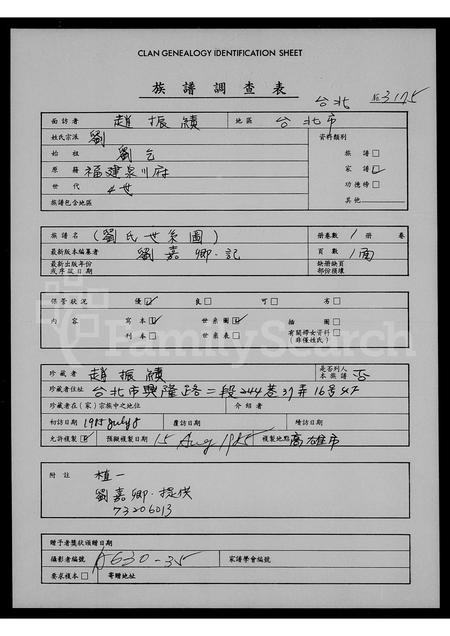 CLAN GENEALOGY IDENTIFICATION SHEET
族譜調查表
台北 3175
面訪者 趙振績 地區 台北市
姓氏宗派 劉 資料類別
始祖 劉乞 族譜□
原籍 福建泉州府 家譜☑
世代 4世 功德榜□
族譜包含地區 其他
族譜名 (劉氏世系圖) 冊卷數 1 冊 卷
最新版本編纂者 劉嘉卿.記 頁數 1面
最新出版年份或序政日期 缺冊缺頁部份損壞
保管狀況 優☑ 良□ 可□ 劣□
內容 寫本☑ 世系圖☑ 插圖□
刊本□ 世系表□ 有關婦女資料(非僅姓氏)□
珍藏者 趙振績 是否列入本族譜 否
珍藏者住址 台北市興隆路二段244巷37弄16号4F
珍藏者在(家)宗族中之地位 介紹者
初訪日期 1985 July 8 覆訪日期 續訪日期
允許複製☑ 預擬複製日期 15 Aug 1985 複製地點 高雄市
附註 植一
劉嘉卿.提供
73206013
贈予者獎狀頒贈日期
攝影者編號 A630-35 家譜學會編號
要求複本□ 寄贈地址
FamilySearch